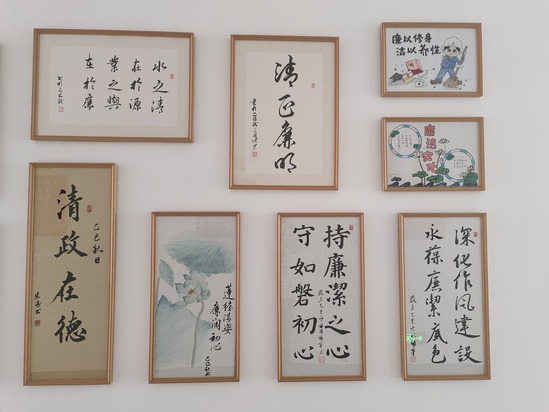 水之清
在於源
業之興
在於廉
清正廉明
廉以修身
洁以养性
廉洁文化
清政在德
乙巳秋日
蓮經清姿
廉潤初心
持廉潔之心
守如磐初心
深化作风建設
永葆廉潔底色